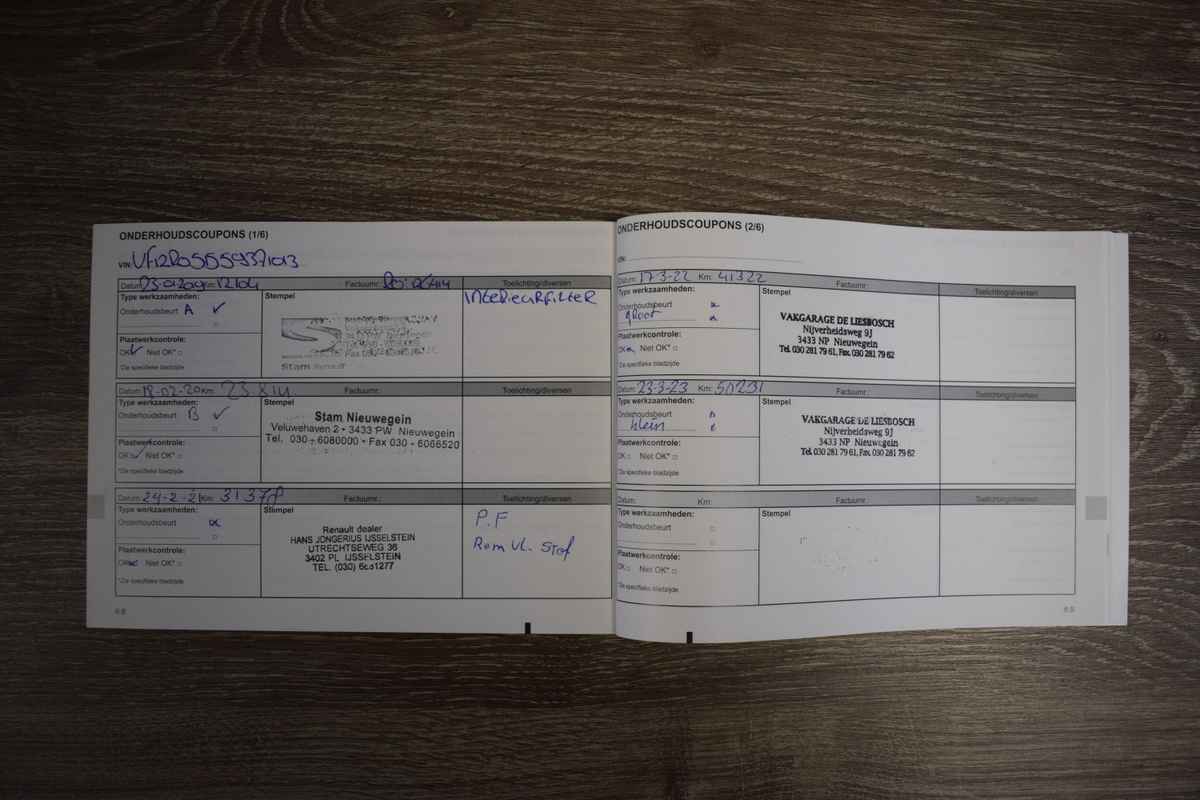 ONDERHOUDSCOUPONS (1/6)
VIN
Datum: Km: 12104 Factuurnr.: Toelichting/diversen
Type werkzaamheden: Stempel INTERIEURFILTER
Onderhoudsbeurt A ✓
Plaatwerkcontrole:
OK ✓ Niet OK* □
*Zie specifieke bladzijde
Stam
Datum: 18-02-20 Km: Factuurnr.: Toelichting/diversen
Type werkzaamheden: Stempel
Onderhoudsbeurt B ✓
Stam Nieuwegein
Veluwehaven 2 • 3433 PW Nieuwegein
Tel. 030 - 6080000 • Fax 030 - 6066520
Plaatwerkcontrole:
OK □ ✓ Niet OK* □
*Zie specifieke bladzijde
Datum: 24-2-21 Km: 31378 Factuurnr.: Toelichting/diversen
Type werkzaamheden: Stempel
Onderhoudsbeurt
P.F
Rem vl. Stof
Renault dealer
HANS JONGERIUS IJSSELSTEIN
UTRECHTSEWEG 36
3402 PL IJSSELSTEIN
TEL. (030)
Plaatwerkcontrole:
OK Niet OK* □
*Zie specifieke bladzijde
ONDERHOUDSCOUPONS (2/6)
VIN:
Datum: 17-3-22 Km: 41322 Factuurnr.: Toelichting/diversen
Type werkzaamheden: Stempel
Onderhoudsbeurt
groot
VAKGARAGE DE LIESBOSCH
Nijverheidsweg 9J
3433 NP Nieuwegein
Tel. 030 281 79 61, Fax. 030 281 79 62
Plaatwerkcontrole:
OK Niet OK* □
*Zie specifieke bladzijde
Datum: 23-3-23 Km: 50231 Factuurnr.: Toelichting/diversen
Type werkzaamheden: Stempel
Onderhoudsbeurt
klein
VAKGARAGE DE LIESBOSCH
Nijverheidsweg 9J
3433 NP Nieuwegein
Tel. 030 281 79 61, Fax. 030 281 79 62
Plaatwerkcontrole:
OK □ Niet OK* □
*Zie specifieke bladzijde
Datum: Km: Factuurnr.: Toelichting/diversen
Type werkzaamheden: Stempel
Onderhoudsbeurt □
Plaatwerkcontrole:
OK □ Niet OK* □
*Zie specifieke bladzijde